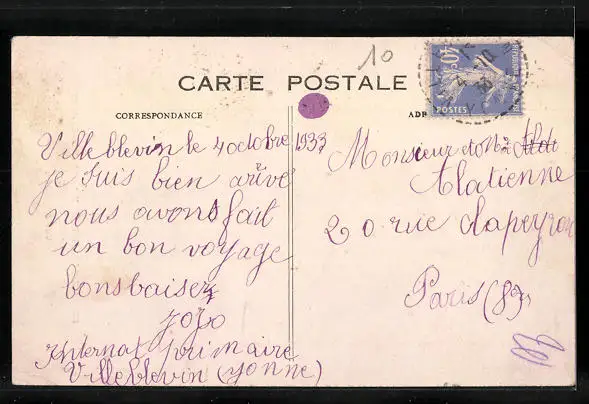 10
CARTE POSTALE
CORRESPONDANCE
ADR
40c
POSTES
Villeblevin le 4 octobre 1933
je suis bien arivé
nous avons fait
un bon voyage
bonsbaisers
jojo
Internat primaire
Villeblevin (yonne)
Monsieur et Me
Alatienne
20 rue clapeyron
Paris (8e)